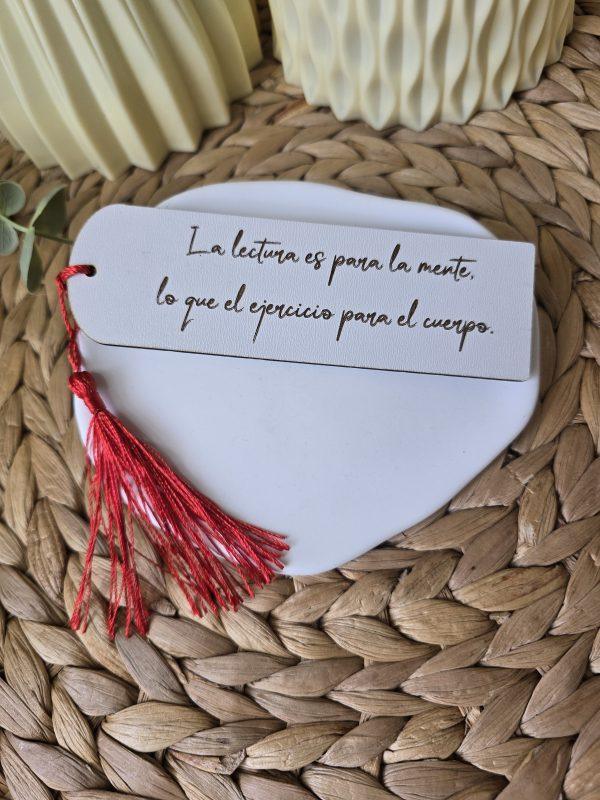 La lectura es para la mente,
lo que el ejercicio para el cuerpo.